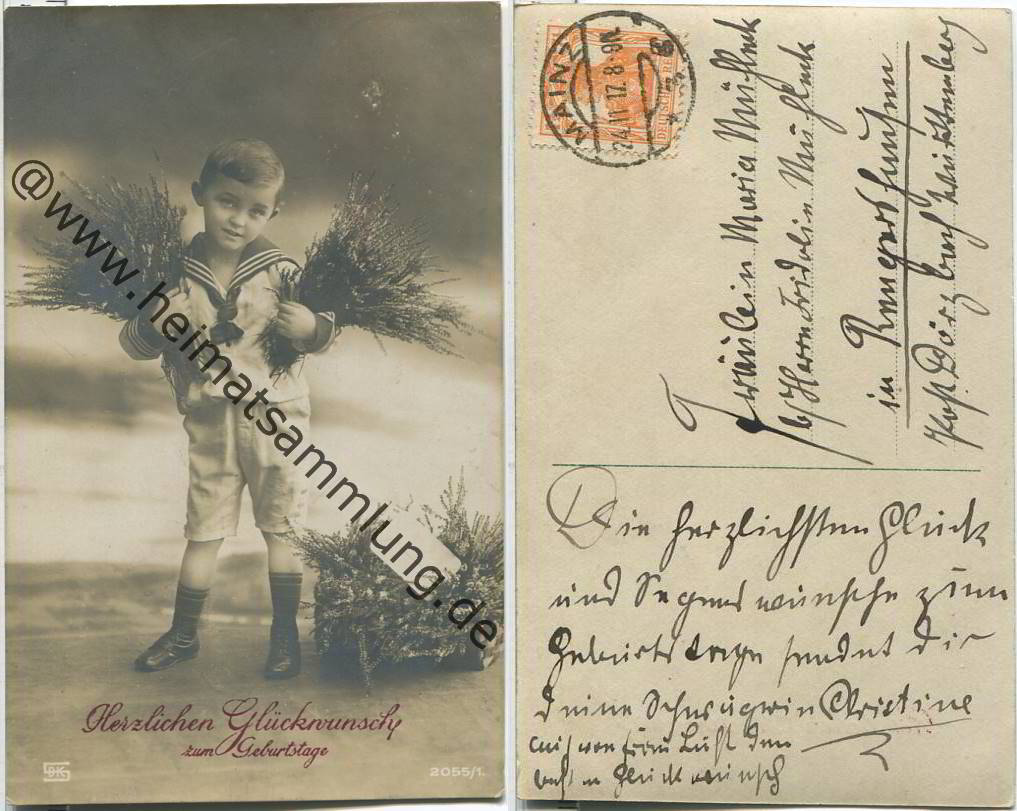 @www.heimatsammlung.de
Herzlichen Glückwunsch
zum Geburtstage
2055/1.
MAINZ
24.11.17. 8-9N.
Fräulein Maria Mühleck
b/ Herrn Fridolin Mühleck
in Rengershausen
Post Dörzbach Württemberg
Die herzlichsten Glück
und Segenswünsche zum
Geburtstage sendet dir
deine Schwägerin Christine
auch von
Glückwunsch